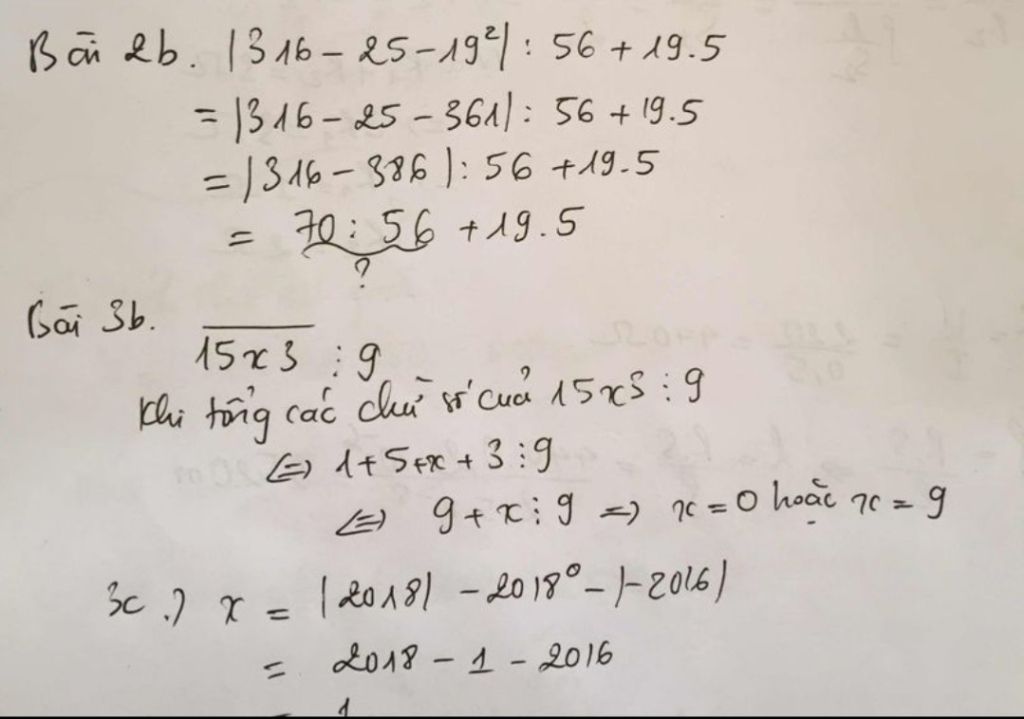 Bài 2b. |316 - 25 - 19²| : 56 + 19.5
= |316 - 25 - 361| : 56 + 19.5
= |316 - 386| : 56 + 19.5
= 70 : 56 + 19.5
?
Bài 3b.
15x3 ⋮ 9
Khi tổng các chữ số của 15x3 ⋮ 9
⇔ 1+5+x+3 ⋮ 9
⇔ 9+x ⋮ 9 ⇒ x = 0 hoặc x = 9
3c.) x = |2018| - 2018⁰ - |-2016|
= 2018 - 1 - 2016
= 1